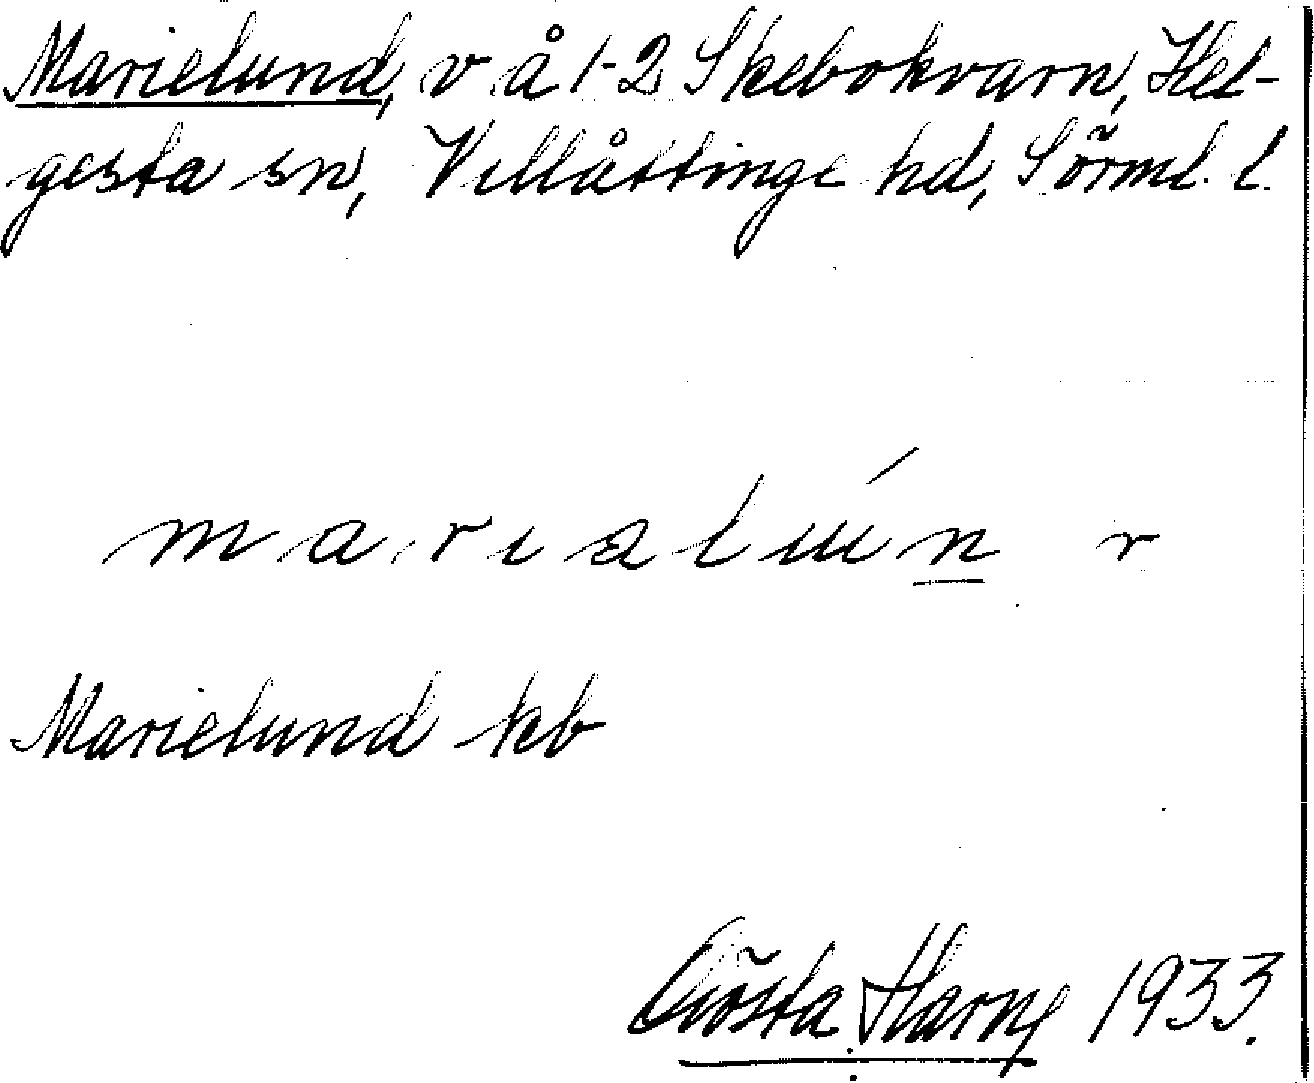 Marielund, v å 1-2 Skebokvarn, Hel-
gesta sn, Villåttinge hd, Sörml. l.
mariəlún r
Marielund kb
Gösta Harny 1933.